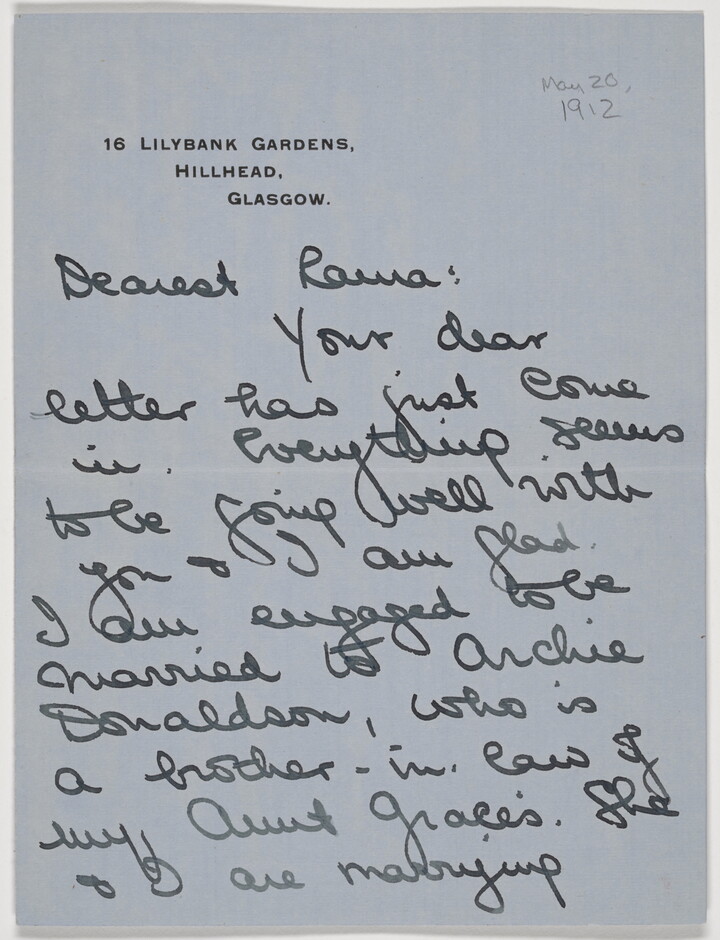 May 20,
1912
16 LILYBANK GARDENS,
HILLHEAD,
GLASGOW.
Dearest Rama:
Your dear
letter has just come
in. Everything seems
to be going well with
you & I am glad.
I am engaged to be
married to Archie
Donaldson, who is
a brother-in-law of
my Aunt Grace's. She
& I are marrying